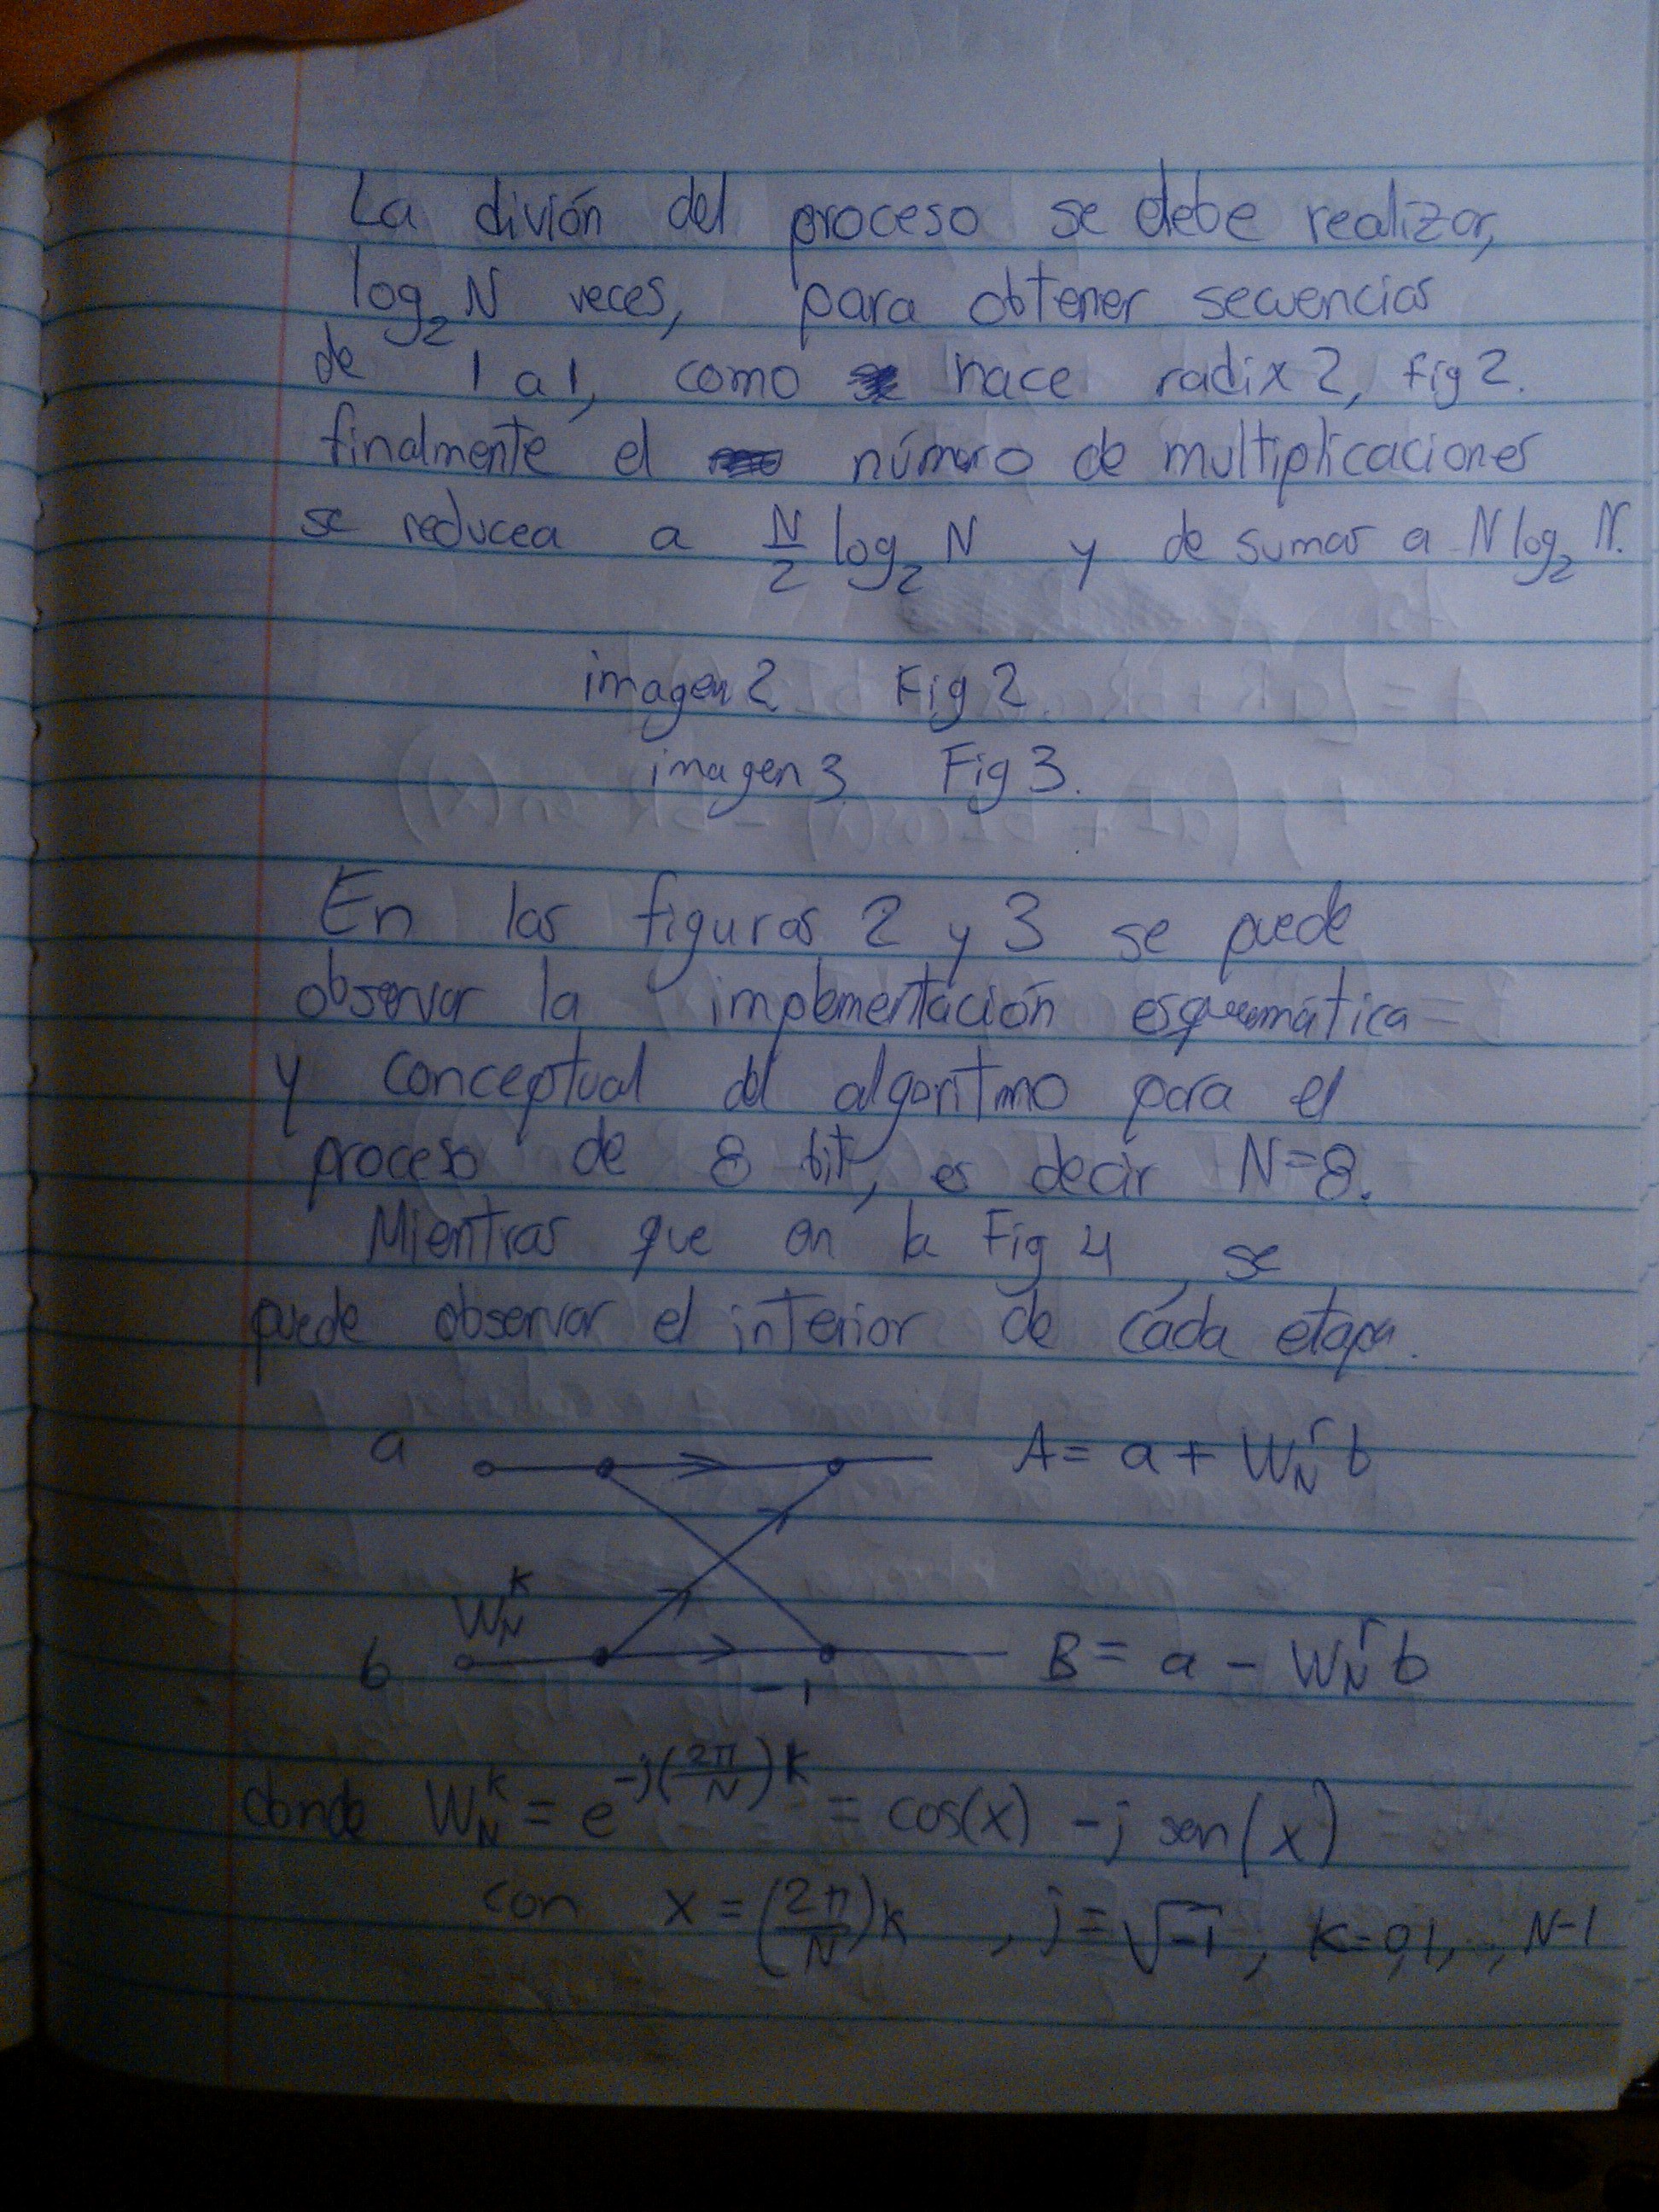 La divión del proceso se debe realizar,
log₂ N veces, para obtener secuencias
de 1 a 1, como hace radix 2, fig 2.
finalmente el número de multiplicaciones
se reducea a N/2 log₂ N y de sumas a N log₂ N.
imagen 2 Fig 2
imagen 3 Fig 3.
En las figuras 2 y 3 se puede
observar la implementación esquemática
y conceptual del algoritmo para el
proceso de 8 bit, es decir N=8.
Mientras que en la Fig 4, se
puede observar el interior de cada etapa.
a A = a + W_N^r b
W_N^k
b -1 B = a - W_N^r b
donde W_N^k = e^{-j(2π/N)k} = cos(x) - j sen(x)
con x = (2π/N)k , j = √-1, k=0,1,..,N-1